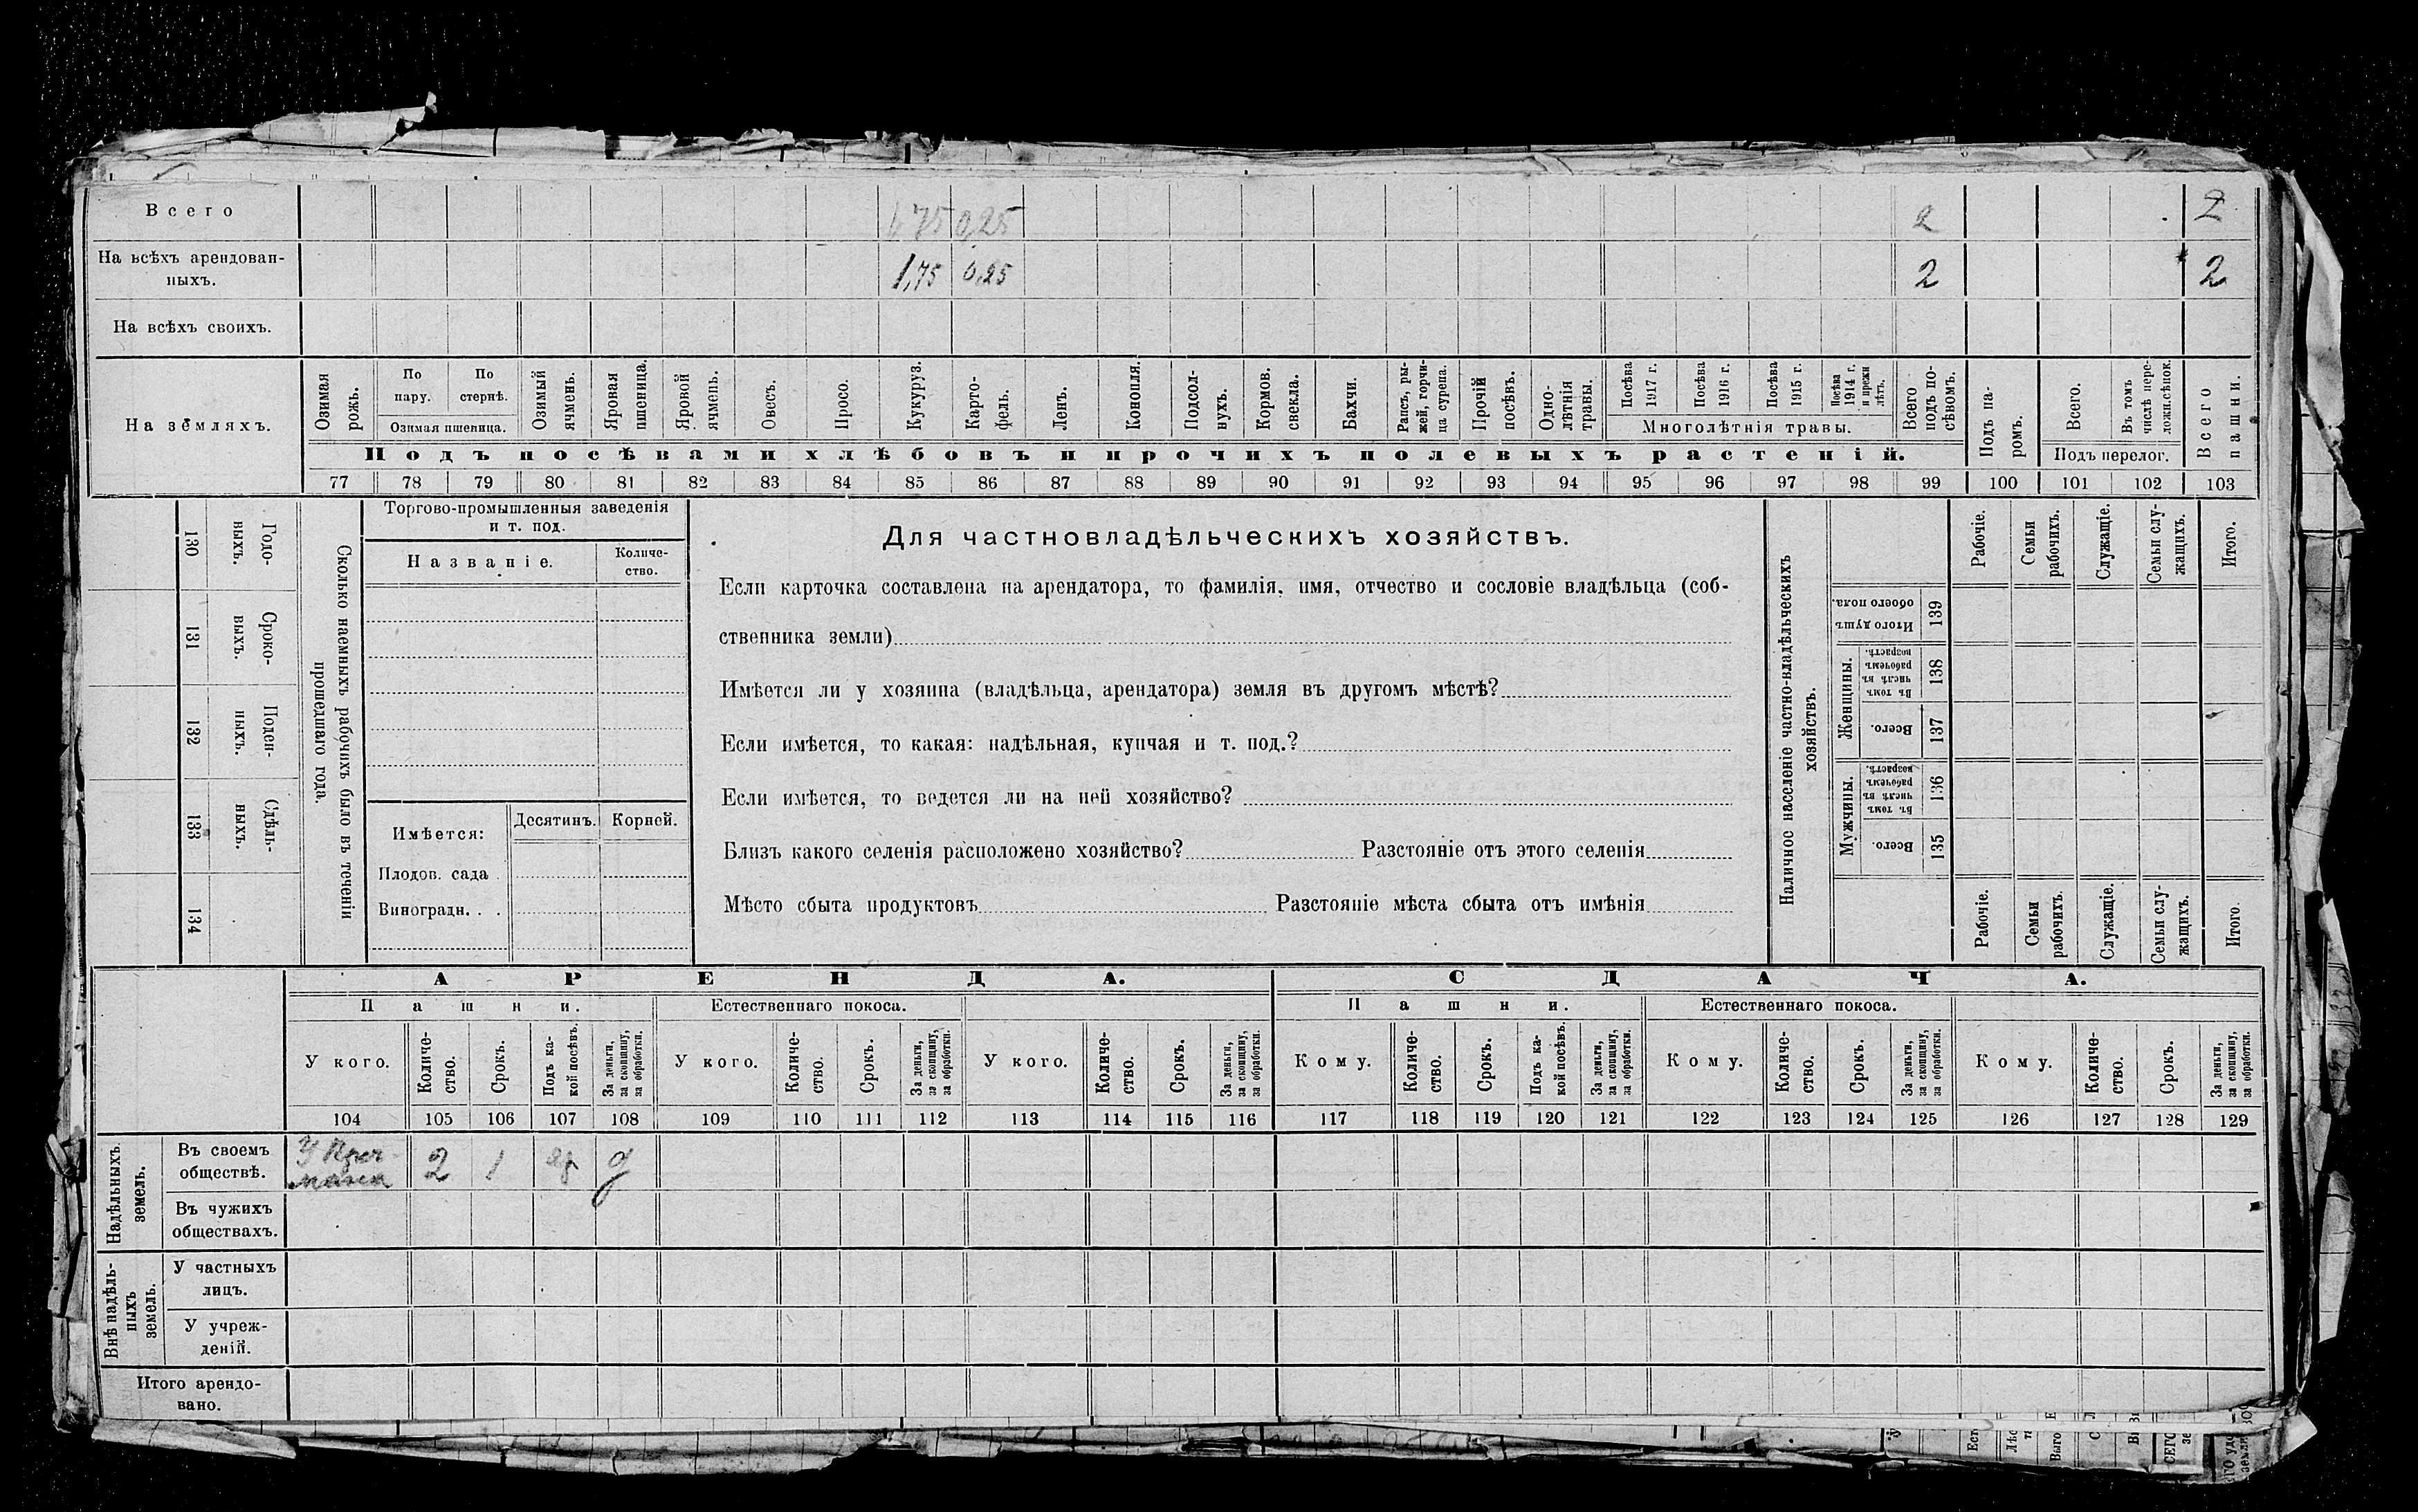 Всего 1,75 0,25 2 2
На всѣхъ арендован-
ныхъ. 1,75 0,25 2 2
На всѣхъ своихъ.
На земляхъ.
Озимая рожь.
По пару.
По стернѣ.
Озимая пшеница.
Озимый ячмень.
Яровая пшеница.
Яровой ячмень.
Овесъ.
Просо.
Кукуруз.
Карто-
фель.
Ленъ.
Конопля.
Подсол-
нухъ.
Кормов. свекла.
Бахчи.
Рапсъ, ры-
жей, горчи-
ца сурепа.
Прочій посѣвъ.
Одно-
лѣтнія травы.
Посѣва 1917 г.
Посѣва 1916 г.
Посѣва 1915 г.
Посѣва 1914 г. и прежн лѣтъ.
Многолѣтнія травы.
Всего подъ по-
сѣвомъ.
Подъ па-
ромъ.
Всего.
Въ томъ числѣ пере-
ложн.сѣнок.
Подъ перелог.
Всего пашни.
Подъ посѣвами хлѣбовъ и прочихъ полевыхъ растеній.
77 78 79 80 81 82 83 84 85 86 87 88 89 90 91 92 93 94 95 96 97 98 99 100 101 102 103
130 Годо-
ныхъ.
131 Сроко-
выхъ.
132 Поден-
ныхъ.
133 Сдѣль-
ныхъ.
134
Сколько наемныхъ рабочихъ было въ теченіи
прошедшаго года.
Торгово-промышленныя заведенія
и т. под.
Названіе.
Количе-
ство.
Имѣется:
Десятинъ. Корней.
Плодов. сада .
Виноградн. . .
Для частновладѣльческихъ хозяйствъ.
Если карточка составлена на арендатора, то фамилія, имя, отчество и сословіе владѣльца (соб-
ственника земли)
Имѣется ли у хозяина (владѣльца, арендатора) земля въ другомъ мѣстѣ?
Если имѣется, то какая: надѣльная, купчая и т. под.?
Если имѣется, то ведется ли на ней хозяйство?
Близъ какого селенія расположено хозяйство? Разстояніе отъ этого селенія
Мѣсто сбыта продуктовъ Разстояніе мѣста сбыта отъ имѣнія
Наличное населеніе частно-владѣльческихъ
хозяйствъ.
Рабочіе.
Семьи рабочихъ.
Служащіе.
Семьи слу-
жащихъ.
Итого.
Итого душъ обоего пола. 139
Женщины.
Въ томъ числѣ въ рабочемъ возрастѣ. 138
Всего. 137
Мужчины.
Въ томъ числѣ въ рабочемъ возрастѣ. 136
Всего. 135
Рабочіе.
Семьи рабочихъ.
Служащіе.
Семьи слу-
жащихъ.
Итого.
АРЕНДА. СДАЧА.
Пашни. Естественнаго покоса. Пашни. Естественнаго покоса.
У кого.
Количе-
ство.
Срокъ.
Подъ ка-
кой посѣвъ.
За деньги,
за скопщину,
за обработки.
У кого.
Количе-
ство.
Срокъ.
За деньги,
за скопщину,
за обработки.
У кого.
Количе-
ство.
Срокъ.
За деньги,
за скопщину,
за обработки.
Кому.
Количе-
ство.
Срокъ.
Подъ ка-
кой посѣвъ.
За деньги,
за скопщину,
за обработки.
Кому.
Количе-
ство.
Срокъ.
За деньги,
за скопщину,
за обработки.
Кому.
Количе-
ство.
Срокъ.
За деньги,
за скопщину,
за обработки.
104 105 106 107 108 109 110 111 112 113 114 115 116 117 118 119 120 121 122 123 124 125 126 127 128 129
Надѣльныхъ
земель.
Въ своемъ
обществѣ. У 2 1 д
Въ чужихъ
обществахъ.
Внѣ надѣль-
ныхъ
земель.
У частныхъ
лицъ.
У учреж-
деній.
Итого арендо-
вано.